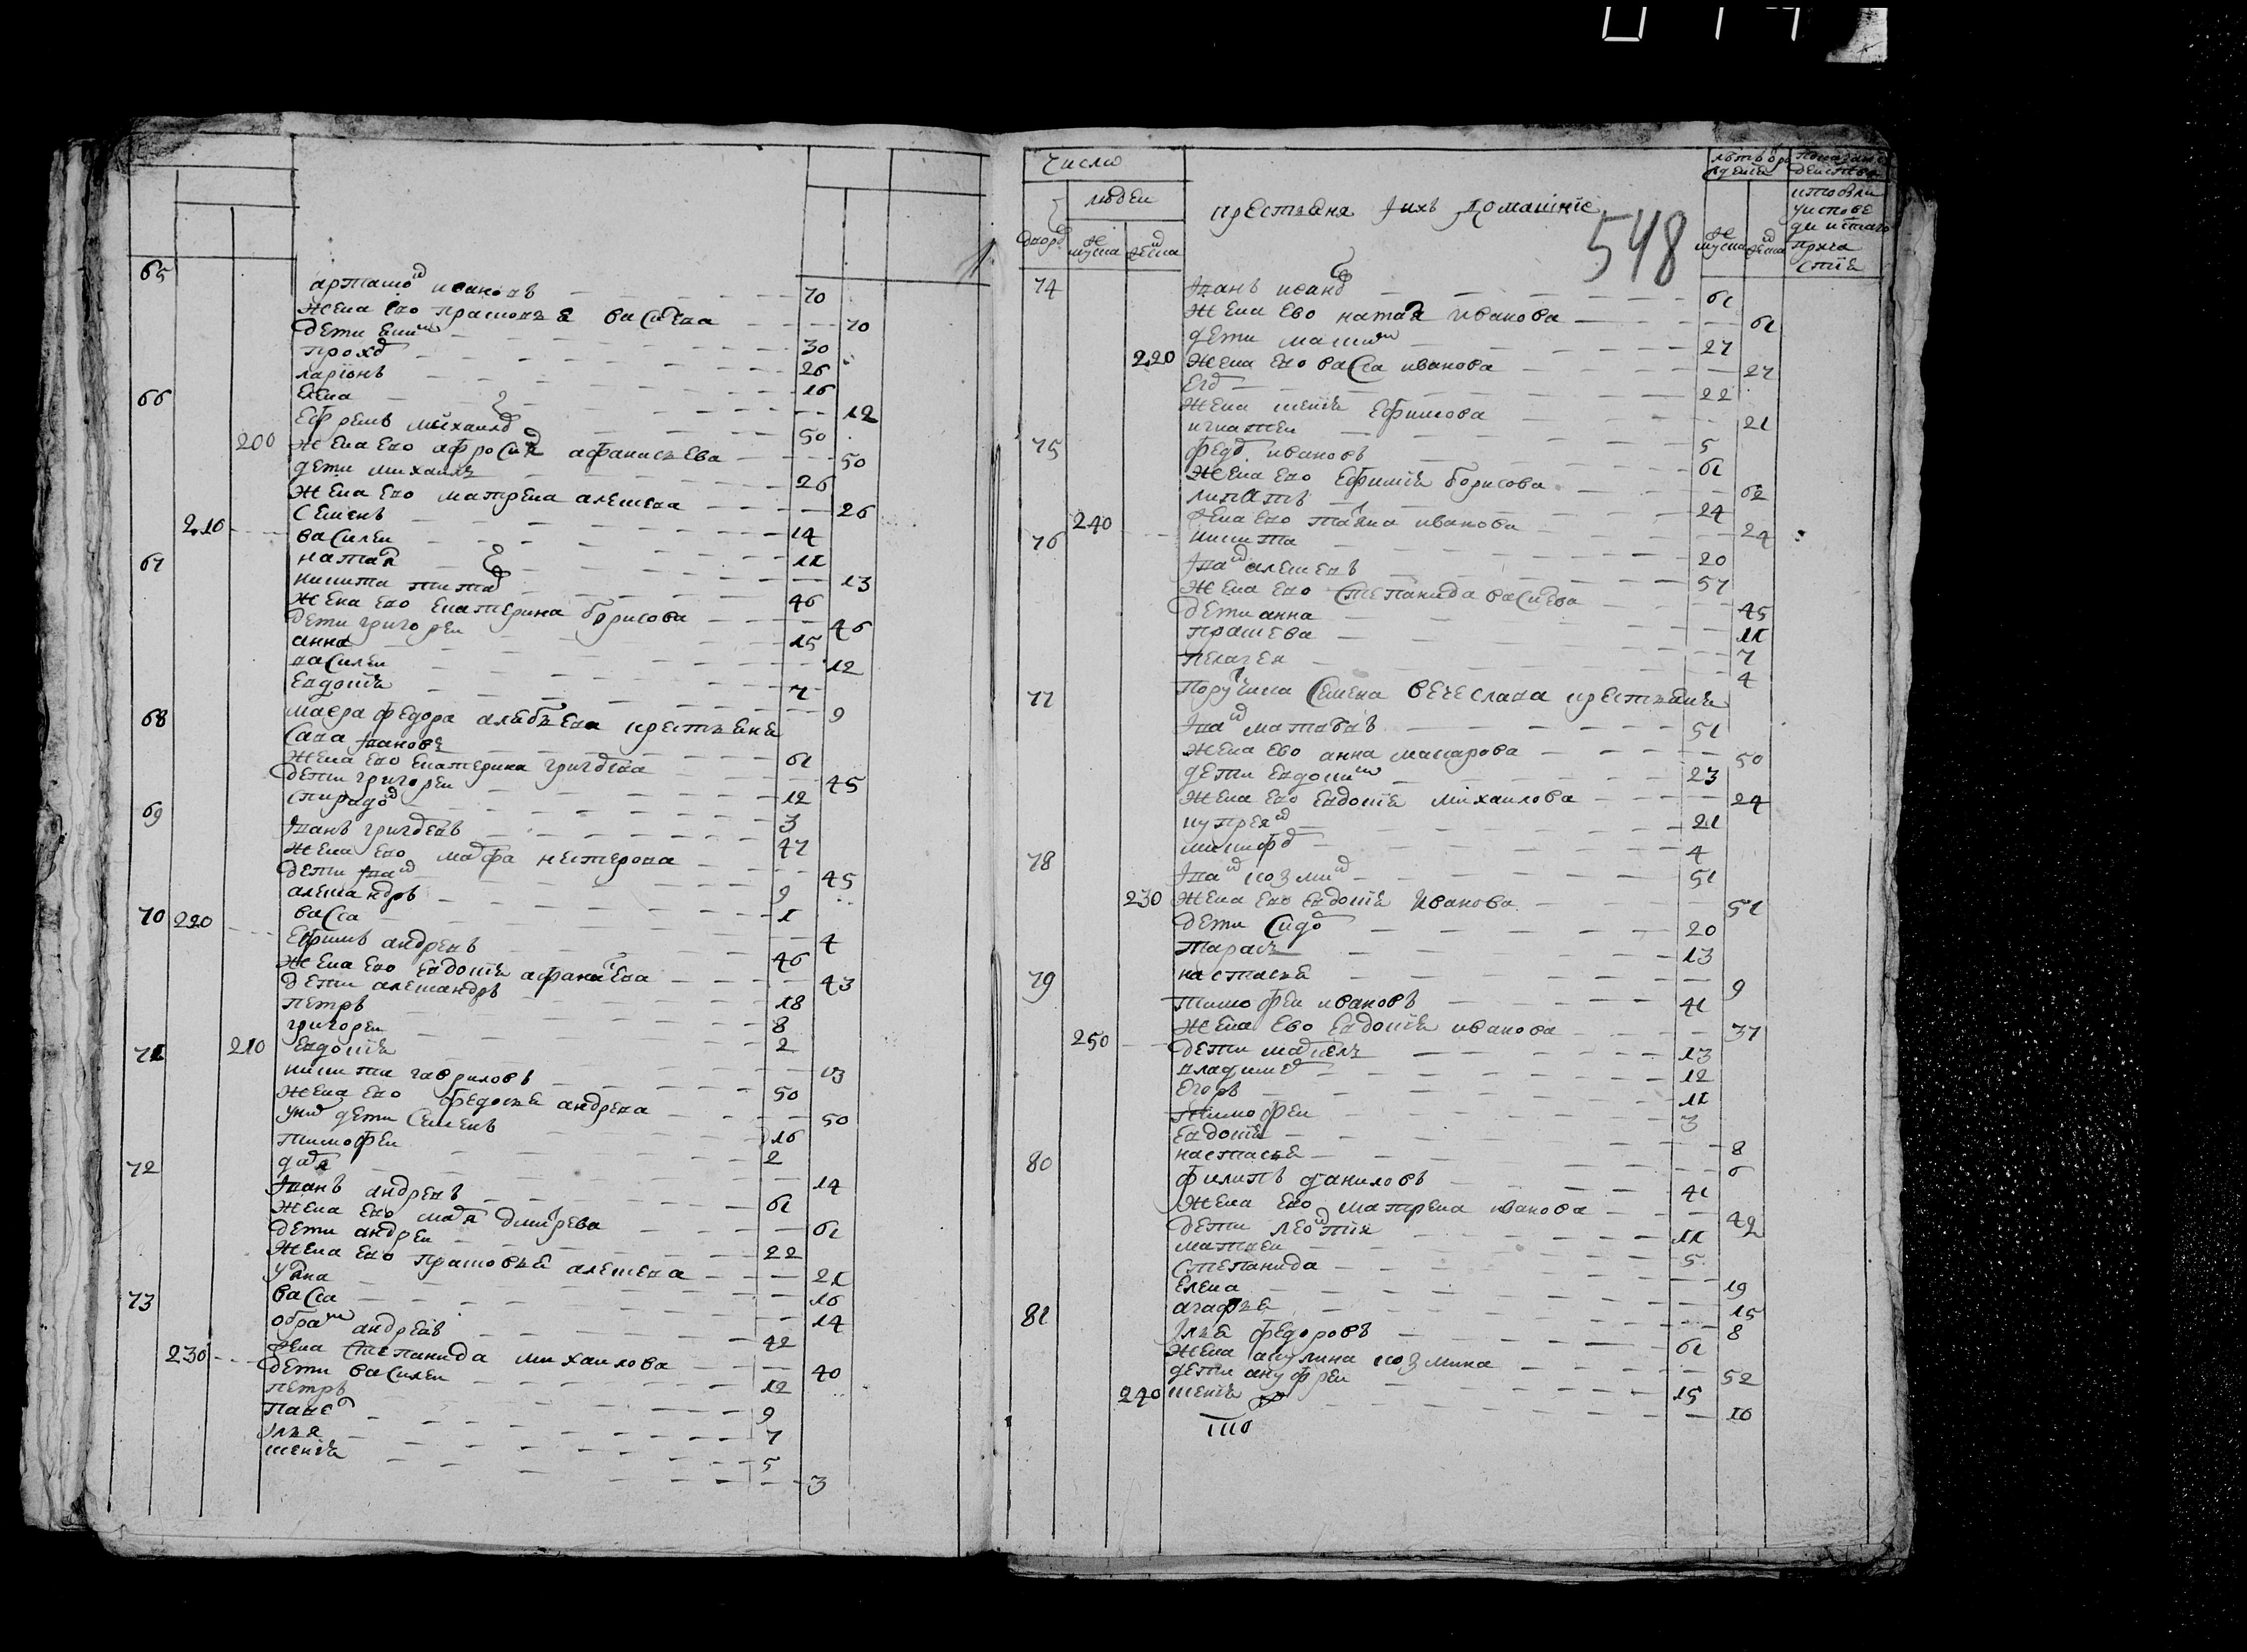 65
артамо иванавъ — 70
жена ево прасковья василева — 70
дети еким — 30
прохо — 26
ларионъ — 16
елена — 12
66 ефремъ михаило — 50
200 жена ево афросиня афанасьева — 50
дети михаилъ — 26
жена ево матрена алексева — 26
семенъ — 14
210 василеи — 11
наталя — 13
67 никита тито — 46
жена ево екатерина борисова — 46
дети григореи — 15
анна — 12
василеи — 7
евдокия — 9
маера федора алябьева крестьяня
68 сава ивановъ — 61
жена ево екатерина григорева — 45
дети григореи — 12
спиридо — 3
69 иванъ григоревъ — 47
жена ево марфа нестерова — 45
дети иван — 9
александръ — 1
васса — 4
70 220 ефимъ андревъ — 46
жена ево евдокия афанасева — 43
дети александръ — 18
петръ — 8
григореи — 2
210 евдокия — 13
71 никита гавриловъ — 50
жена ево федосья андрева — 50
у них дети семенъ — 16
тимофеи — 2
дарья — 14
72 иванъ андревъ — 61
жена ево марья дмитрева — 61
дети андреи — 22
жена ево прасковья алексева — 21
уляна — 16
васса — 14
73 абрам андревъ — 42
жена степанида михаилова — 40
230 дети василеи — 12
петръ — 9
павел — 7
илья — 5
ксения — 3
число
людеи
дворо
муска
женска
крестьяня и ихъ домашние
548
летъ от рождения
муска
женска
показание действа
кто былъ у исповеди и святаго причастия
74 иванъ ивано — 61
жена ево наталя иванова — 61
дети максим — 27
220 жена ево васса иванова — 27
его — 22
жена ксения ефимова — 21
игнатеи — 5
75 федо ивановъ — 61
жена ево ефимия борисова — 62
липатъ — 24
жена ево татяна иванова — 24
240 никита — 20
76 иван алексевъ — 57
жена ево степанида василева — 45
дети анна — 11
прасковя — 7
пелагея — 4
поручика семена вечеслава крестьяня
77 иван матвевъ — 51
жена ево анна макарова — 50
дети евдоким — 23
жена ево евдокия михаилова — 24
купреян — 21
никифо — 4
78 иван козмин — 51
230 жена ево евдокия иванова — 51
дети сидо — 20
тарасъ — 13
настасья — 9
79 тимофеи ивановъ — 41
жена ево евдокия иванова — 37
250 дети маркелъ — 13
владиме — 12
егоръ — 11
тимофеи — 3
евдокия — 8
настасья — 6
80 филипъ даниловъ — 41
жена ево матрена иванова — 42
дети леонтия — 11
матвеи — 5
степанида — 19
елена — 15
агафья — 8
81 илья федоровъ — 61
жена акулина козмина — 52
дети ануфреи — 15
240 ксения — 16